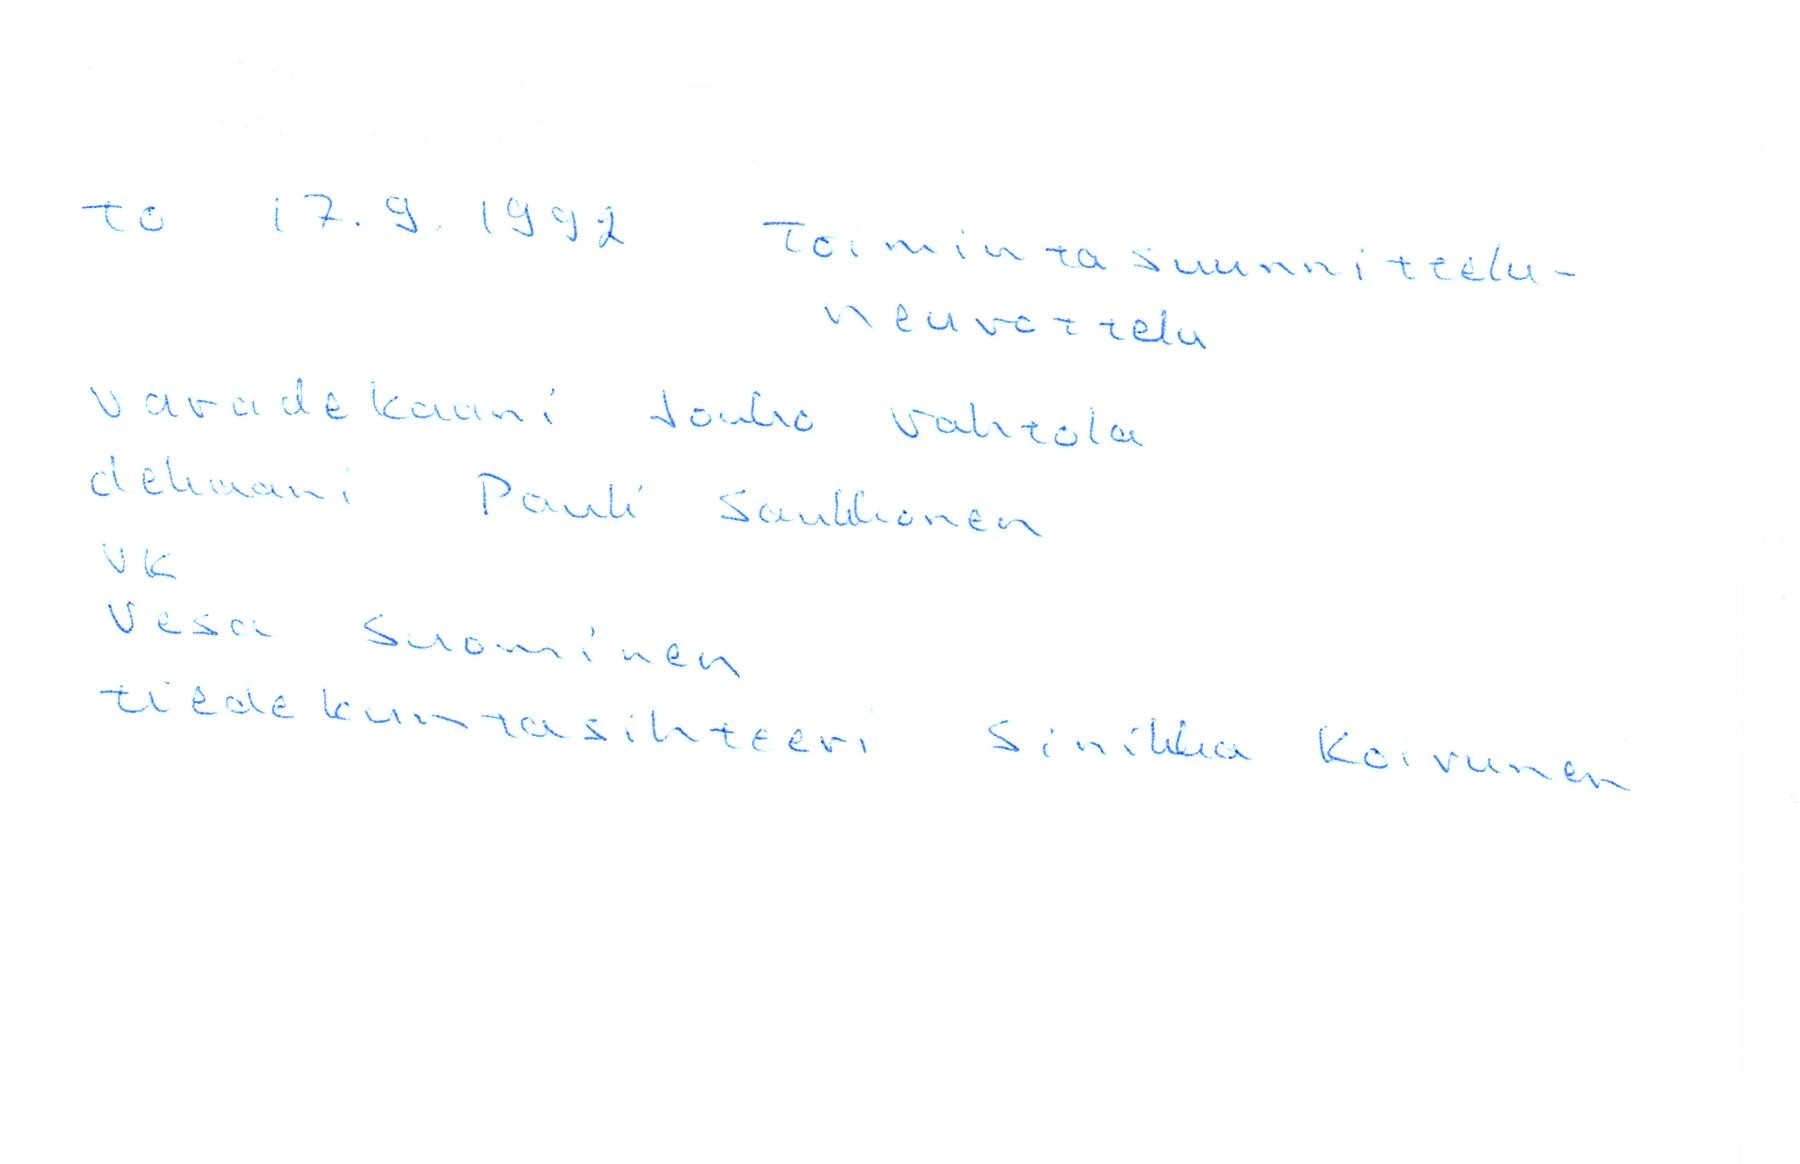 to 17.9.1992 Toimintasuunnittelu-
neuvottelu
varadekaani Jouko Vahtola
dekaani Pauli Saukkonen
VK
Vesa Suominen
tiedekuntasihteeri Sinikka Koivunen